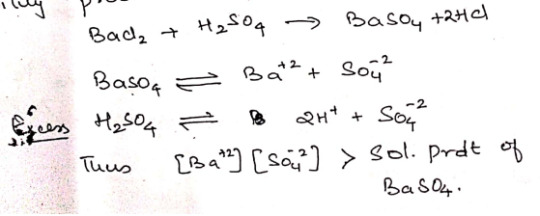 BaCl₂ + H₂SO₄ → BaSO₄ + 2HCl
BaSO₄ ⇌ Ba⁺² + SO₄⁻²
Excess H₂SO₄ ⇌ 2H⁺ + SO₄⁻²
Thus [Ba⁺²] [SO₄⁻²] > Sol. prdt of
BaSO₄.